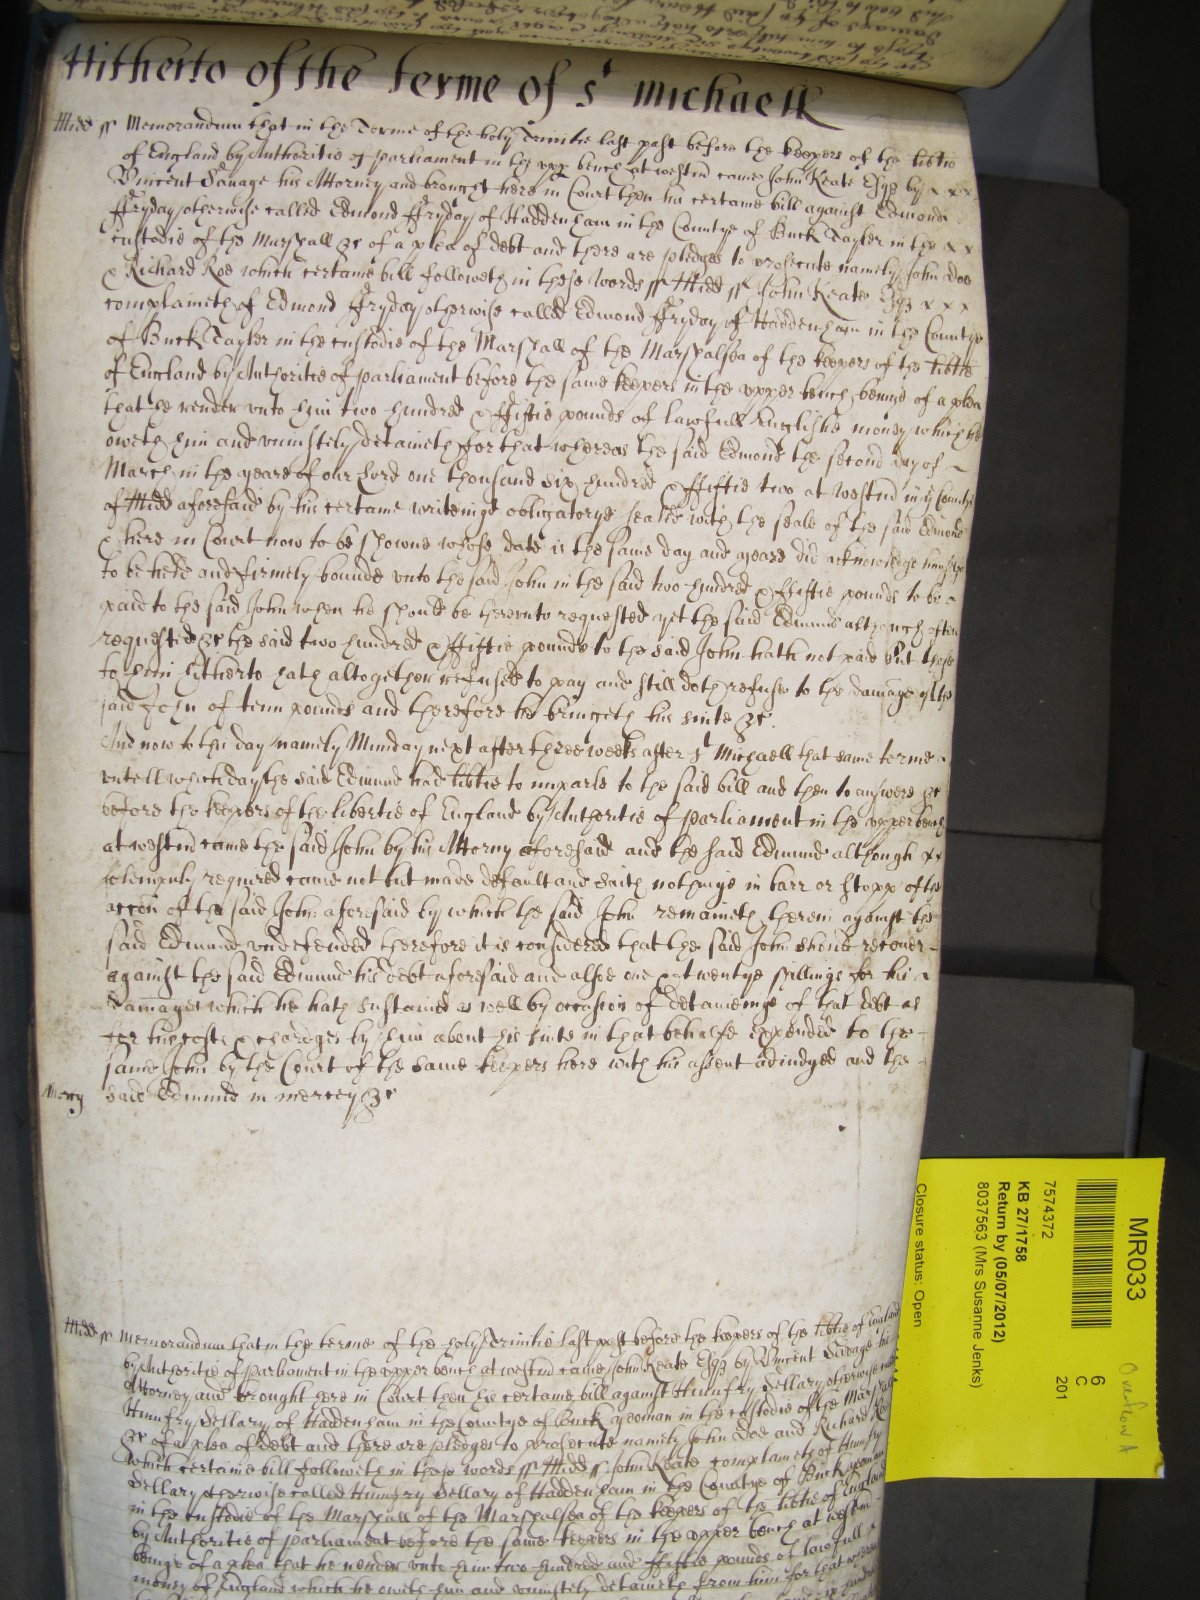 Hitherto of the terme of St Michaell
Midd ss Memorandum that in the Terme of the holy Trinitie last past before the keepers of the libtie
of England by Authoritie of parliament in the vpp bench at westm came John Keate Esqr by x x x
Vincent Savage his Attorney and brought here in Court then his certaine bill against Edmond
ffryday otherwise called Edmond ffryday of Haddenham in the Countye of Buck Tayler in the x x
custodie of the Marshall &c of a plea of debt and there are pledges to prosecute namely John Doe
& Richard Roe which certaine bill followeth in these words ss Midd ss John Keate Esqr x x x
complaineth of Edmond ffryday otherwise called Edmond ffryday of Haddenham in the Countye
of Buck Tayler in the custodie of the Marshall of the Marshalsea of the keepers of the libtie
of England by Authoritie of parliament before the same keepers in the vpper bench beinge of a plea
that he render vnto him two hundred & ffiftie pounds of lawfull Englishe money which he
oweth him and vniustely detaineth ffor that whereas the said Edmond the second day of
March in the yeare of our Lord one thousand six hundred & ffiftie two at westm in ye County
of Midd aforesaid by his certaine writeinge obligatorye sealed with the seale of the said Edmond
& here in Court now to be showne whose date is the same day and yeare did acknowledge himselfe
to be held and firmely bound vnto the said John in the said two hundred & ffiftie pounds to be
paid to the said John when he should be therevnto requested yet the said Edmund although often
requested &c the said two hundred & ffiftie pounds to the said John hath not paid but those
to him hitherto hath altogether refused to pay and still doth refuse to the damage of the
said John of tenn pounds and therefore he bringeth his suite &c.
And now to this day namely Munday next after three weeks after St Michaell that same terme
vntill which day the said Edmund had libtie to imparle to the said bill and then to answere &c
before the keepers of the libertie of England by Authoritie of parliament in the vpper bench
at westm came the said John by his Attorny aforesaid and the said Edmund although xx
solempnly required came not but made default and saith nothinge in barr or stopp of the
accon of the said John aforesaid by which the said John remaineth therein against the
said Edmund vndefended therefore it is considered that the said John should recover
against the said Edmund his debt aforesaid and alsoe one & twentye shillings for his
Damages which he hath sustained as well by occasion of detaineinge of that debt as
for his costs & chardges by him about his suite in that behalfe expended to the
same John by the Court of the same keepers here with his assent adiudged and the
Mercy said Edmund in mercey &c
Midd ss Memorandum that in the terme of the holy Trinitie last past before the keepers of the libtie of England
by Authoritie of parliament in the vpper bench at westm came John Keate Esqr by Vincent Savage his
Attorney and brought here in Court then his certaine bill against Humfry Dellary otherwise called
Humfry Dellary of Haddenham in the Countye of Buck yeoman in the custodie of the Marshall
&c of a plea of debt and there are pledges to prosecute namely John Doe and Richard Roe
which certaine bill followeth in these words ss Midd ss John Keate complaineth of Humfry
Dellary otherwise called Humfry Dellary of Haddenham in the Countye of Buck yeoman
in the custodie of the Marshall of the Marshalsea of the keepers of the libtie of England
by Authoritie of parliament before the same keepers in the vpper bench at westm
beinge of a plea that he render vnto him two hundred and ffiftie pounds of lawfull x
money of England which he oweth him and vniustely detaineth from him for that whereas
MR033
6
C
201
7574372
KB 27/1758
Return by (05/07/2012)
8037563 (Mrs Susanne Jenks)
Closure status: Open